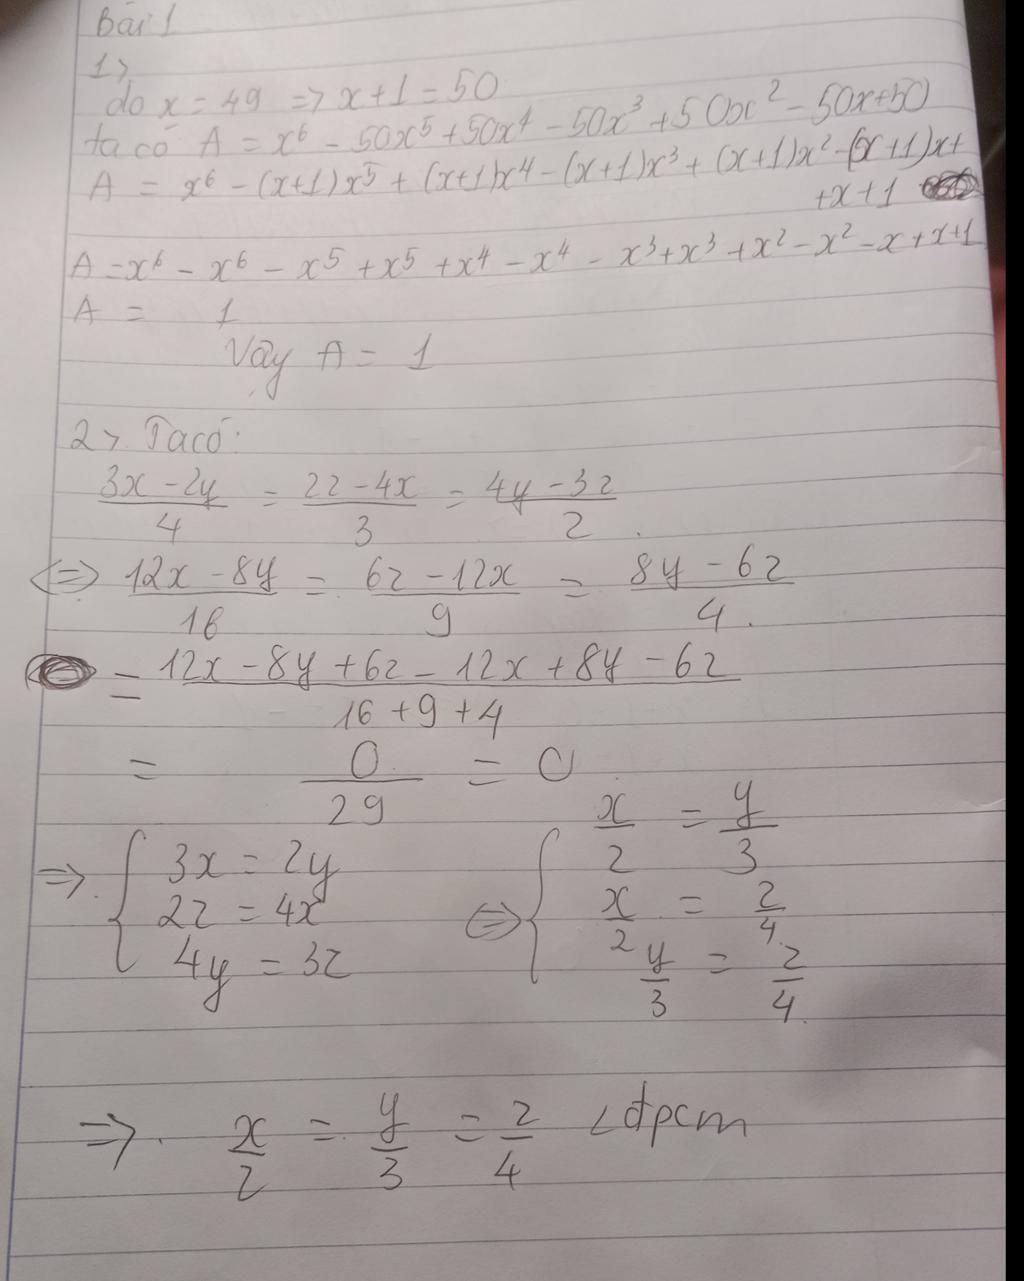 Bài 1
1>
do x = 49 => x+1 = 50
ta có A = x⁶ - 50x⁵ + 50x⁴ - 50x³ + 50x² - 50x + 50
A = x⁶ - (x+1)x⁵ + (x+1)x⁴ - (x+1)x³ + (x+1)x² - (x+1)x +
+x+1
A = x⁶ - x⁶ - x⁵ + x⁵ + x⁴ - x⁴ - x³ + x³ + x² - x² - x + x + 1
A = 1
Vậy A = 1
2> Ta có:
(3x - 2y)/4 = (2z - 4x)/3 = (4y - 3z)/2 .
<=> (12x - 8y)/16 = (6z - 12x)/9 = (8y - 6z)/4 .
= (12x - 8y + 6z - 12x + 8y - 6z)/(16 + 9 + 4)
= 0/29 = 0
=> { 3x = 2y <=> { x/2 = y/3
2z = 4x x/2 = z/4
4y = 3z y/3 = z/4
=> x/2 = y/3 = z/4 <đpcm